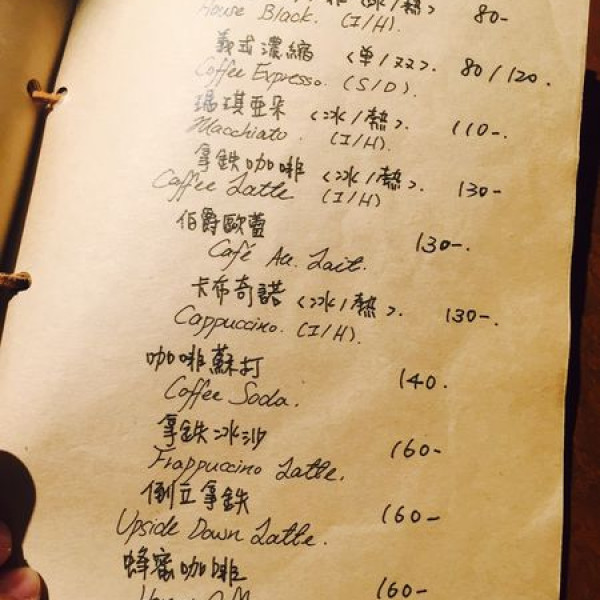 <冰/熱> 80-
House Black. (I/H).
義式濃縮 <单/双>. 80/120.
Coffee Expresso. (S/D).
瑪琪亞朵 <冰/熱>. 110-.
Macchiato. (I/H).
拿鉄咖啡 <冰/熱>. 130-
Caffee Latte (I/H)
伯爵歐蕾 130-.
Café Au. Lait.
卡布奇諾 <冰/熱>. 130-.
Cappuccino. (I/H).
咖啡蘇打 140.
Coffee Soda.
拿鉄冰沙 160-
Frappuccino Latte.
倒立拿鉄 160-
Upside Down Latte.
蜂蜜咖啡 160-